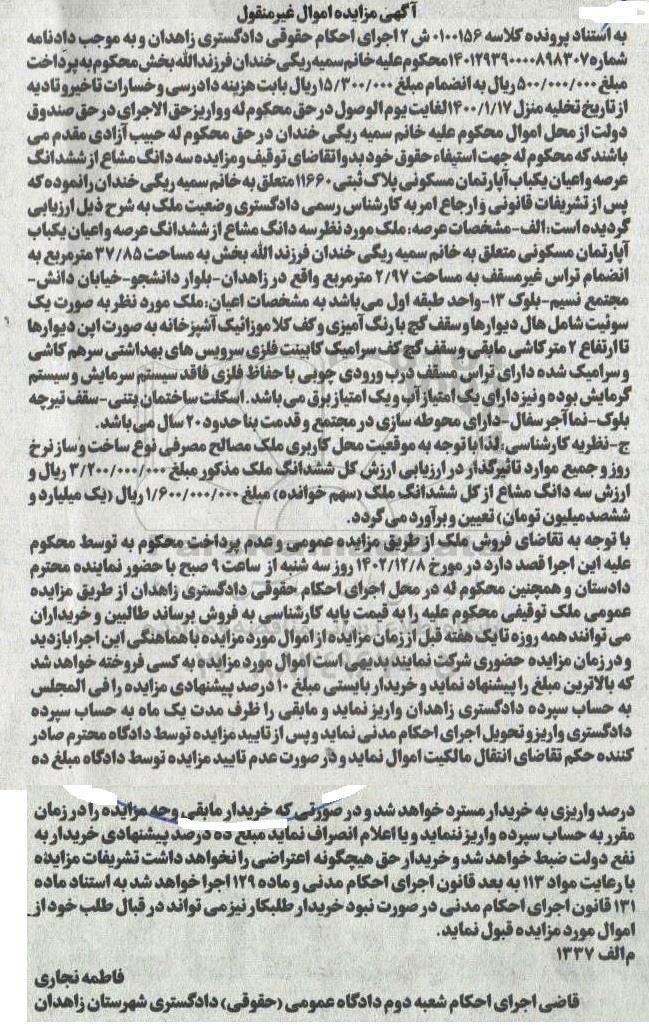 آگهی مزایده اموال غیرمنقول
به استناد پرونده کلاسه ۰۱۰۰۱۵۶ ش ۲ اجرای احکام حقوقی دادگستری زاهدان و به موجب دادنامه
شماره ۱۴۰۱۲۹۳۹۰۰۰۰۸۹۸۳۰۷ محکوم علیه خانم سمیه ریگی خندان فرزند الله بخش محکوم به پرداخت
مبلغ ۵۰۰/۰۰۰/۰۰۰ ریال به انضمام مبلغ ۱۵/۳۰۰/۰۰۰ ریال بابت هزینه دادرسی و خسارات تاخیر و تادیه
از تاریخ تخلیه منزل ۱۴۰۰/۱/۱۷ لغایت یوم الوصول در حق محکوم له و واریز حق الاجرای در حق صندوق
دولت از محل اموال محکوم علیه خانم سمیه ریگی خندان در حق محکوم له حبیب آزادی مقدم می
باشند که محکوم له جهت استیفاء حقوق خود بدوا تقاضای توقیف و مزایده سه دانگ مشاع از ششدانگ
عرصه و اعیان یکباب آپارتمان مسکونی پلاک ثبتی ۱۱۶۶۰ متعلق به خانم سمیه ریگی خندان را نموده که
پس از تشریفات قانونی و ارجاع امر به کارشناس رسمی دادگستری وضعیت ملک به شرح ذیل ارزیابی
گردیده است: الف- مشخصات عرصه: ملک مورد نظر سه دانگ مشاع از ششدانگ عرصه و اعیان یکباب
آپارتمان مسکونی متعلق به خانم سمیه ریگی خندان فرزند الله بخش به مساحت ۳۷/۸۵ مترمربع به
انضمام تراس غیرمسقف به مساحت ۲/۹۷ مترمربع واقع در زاهدان- بلوار دانشجو- خیابان دانش-
مجتمع نسیم- بلوک ۱۳- واحد طبقه اول می باشد به مشخصات اعیان: ملک مورد نظر به صورت یک
سوئیت شامل هال دیوارها و سقف گچ با رنگ آمیزی و کف کلا موزائیک آشپزخانه به صورت اپن دیوارها
تا ارتفاع ۲ متر کاشی مابقی و سقف گچ کف سرامیک کابینت فلزی سرویس های بهداشتی سرهم کاشی
و سرامیک شده دارای تراس مسقف درب ورودی چوبی با حفاظ فلزی فاقد سیستم سرمایش و سیستم
گرمایش بوده و نیز دارای یک امتیاز آب و یک امتیاز برق می باشد. اسکلت ساختمان بتنی- سقف تیرچه
بلوک- نما آجر سفال- دارای محوطه سازی در مجتمع و قدمت بنا حدود ۲۰ سال می باشد.
ج- نظریه کارشناسی: لذا با توجه به موقعیت محل کاربری ملک مصالح مصرفی نوع ساخت و ساز نرخ
روز و جمیع موارد تاثیرگذار در ارزیابی ارزش کل ششدانگ ملک مذکور مبلغ ۳/۲۰۰/۰۰۰/۰۰۰ ریال و
ارزش سه دانگ مشاع از کل ششدانگ ملک (سهم خوانده) مبلغ ۱/۶۰۰/۰۰۰/۰۰۰ ریال (یک میلیارد و
ششصد میلیون تومان) تعیین و برآورد می گردد.
با توجه به تقاضای فروش ملک از طریق مزایده عمومی و عدم پرداخت محکوم به توسط محکوم
علیه این اجرا قصد دارد در مورخ ۱۴۰۲/۱۲/۸ روز سه شنبه از ساعت ۹ صبح با حضور نماینده محترم
دادستان و همچنین محکوم له در محل اجرای احکام حقوقی دادگستری زاهدان از طریق مزایده
عمومی ملک توقیفی محکوم علیه را به قیمت پایه کارشناسی به فروش برساند طالبین و خریداران
می توانند همه روزه تا یک هفته قبل از زمان مزایده از اموال مورد مزایده با هماهنگی این اجرا بازدید
و در زمان مزایده حضوری شرکت نمایند بدیهی است اموال مورد مزایده به کسی فروخته خواهد شد
که بالاترین مبلغ را پیشنهاد نماید و خریدار بایستی مبلغ ۱۰ درصد پیشنهادی مزایده را فی المجلس
به حساب سپرده دادگستری زاهدان واریز نماید و مابقی را ظرف مدت یک ماه به حساب سپرده
دادگستری واریز و تحویل اجرای احکام مدنی نماید و پس از تایید مزایده توسط دادگاه محترم صادر
کننده حکم تقاضای انتقال مالکیت اموال نماید و در صورت عدم تایید مزایده توسط دادگاه مبلغ ده
درصد واریزی به خریدار مسترد خواهد شد و در صورتی که خریدار مابقی وجه مزایده را در زمان
مقرر به حساب سپرده واریز ننماید و یا اعلام انصراف نماید مبلغ ده درصد پیشنهادی خریدار به
نفع دولت ضبط خواهد شد و خریدار حق هیچگونه اعتراضی را نخواهد داشت تشریفات مزایده
با رعایت مواد ۱۱۳ به بعد قانون اجرای احکام مدنی و ماده ۱۲۹ اجرا خواهد شد به استناد ماده
۱۳۱ قانون اجرای احکام مدنی در صورت نبود خریدار طلبکار نیز می تواند در قبال طلب خود از
اموال مورد مزایده قبول نماید.
م الف ۱۳۳۷
فاطمه نجاری
قاضی اجرای احکام شعبه دوم دادگاه عمومی (حقوقی) دادگستری شهرستان زاهدان